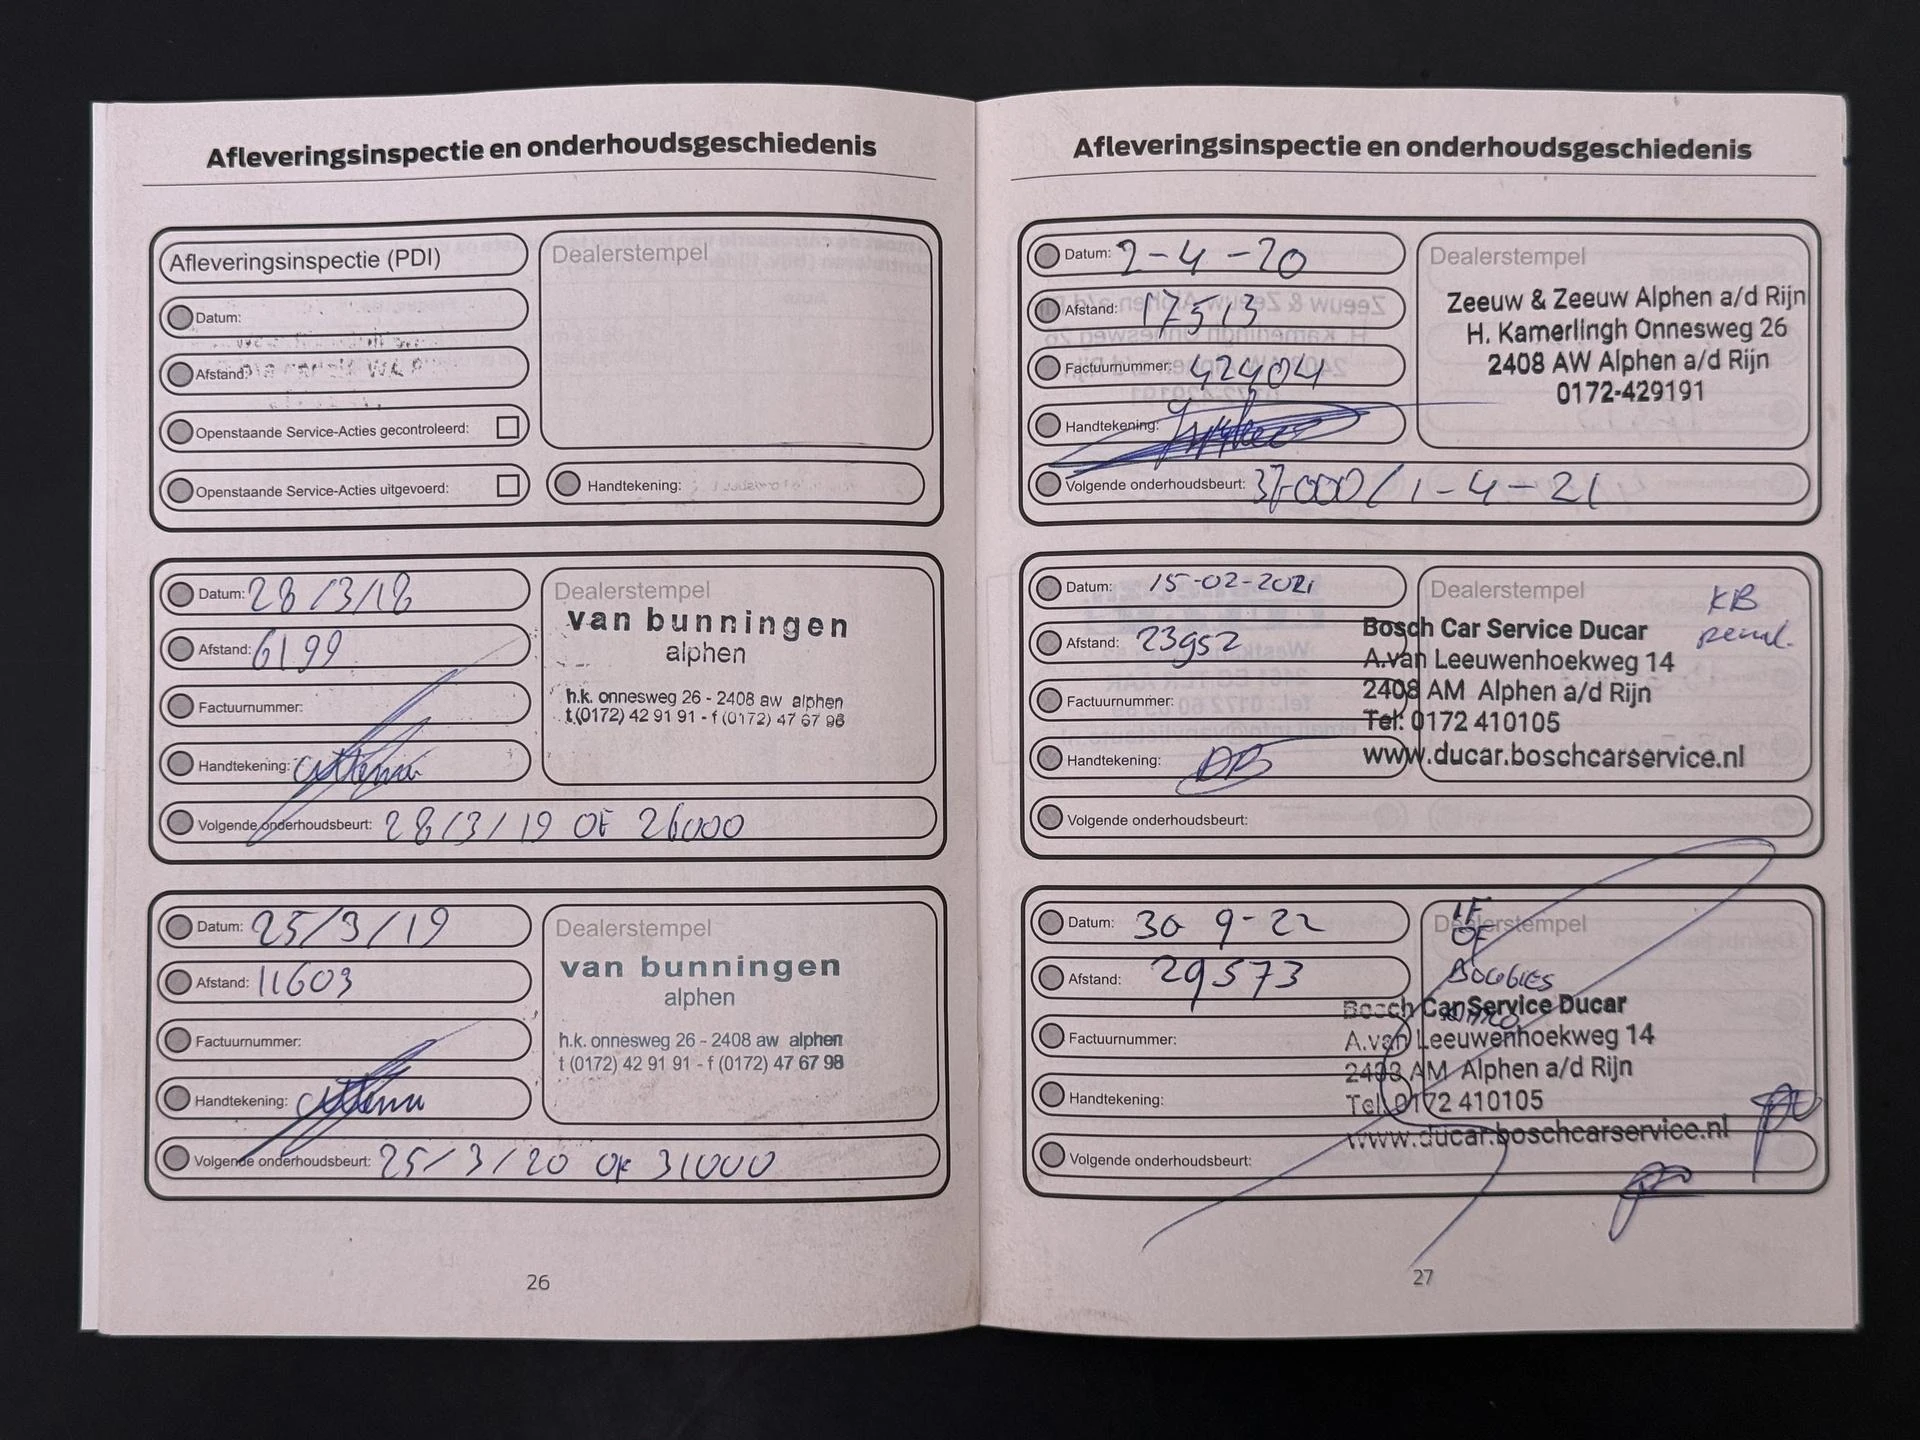 Afleveringsinspectie en onderhoudsgeschiedenis
Afleveringsinspectie (PDI)
Datum:
Afstand:
Openstaande Service-Acties gecontroleerd:
Openstaande Service-Acties uitgevoerd:
Dealerstempel
Handtekening:
Datum: 28/3/18
Afstand: 6199
Factuurnummer:
Handtekening:
Volgende onderhoudsbeurt: 28/3/19 OF 26000
Dealerstempel
van bunningen
alphen
h.k. onnesweg 26 - 2408 aw alphen
t (0172) 42 91 91 - f (0172) 47 67 98
Datum: 25/3/19
Afstand: 11603
Factuurnummer:
Handtekening:
Volgende onderhoudsbeurt: 25/3/20 OF 31000
Dealerstempel
van bunningen
alphen
h.k. onnesweg 26 - 2408 aw alphen
t (0172) 42 91 91 - f (0172) 47 67 98
26
Afleveringsinspectie en onderhoudsgeschiedenis
Datum: 2-4-20
Afstand: 17513
Factuurnummer: 42404
Handtekening:
Volgende onderhoudsbeurt: 37000 / 1-4-21
Dealerstempel
Zeeuw & Zeeuw Alphen a/d Rijn
H. Kamerlingh Onnesweg 26
2408 AW Alphen a/d Rijn
0172-429191
Datum: 15-02-2021
Afstand: 23952
Factuurnummer:
Handtekening: DB
Volgende onderhoudsbeurt:
Dealerstempel
KB
Bosch Car Service Ducar
A.van Leeuwenhoekweg 14
2408 AM Alphen a/d Rijn
Tel: 0172 410105
www.ducar.boschcarservice.nl
Datum: 30 9-22
Afstand: 29573
Factuurnummer:
Handtekening:
Volgende onderhoudsbeurt:
Dealerstempel
Bosch Car Service Ducar
A.van Leeuwenhoekweg 14
2408 AM Alphen a/d Rijn
Tel. 0172 410105
www.ducar.boschcarservice.nl
27